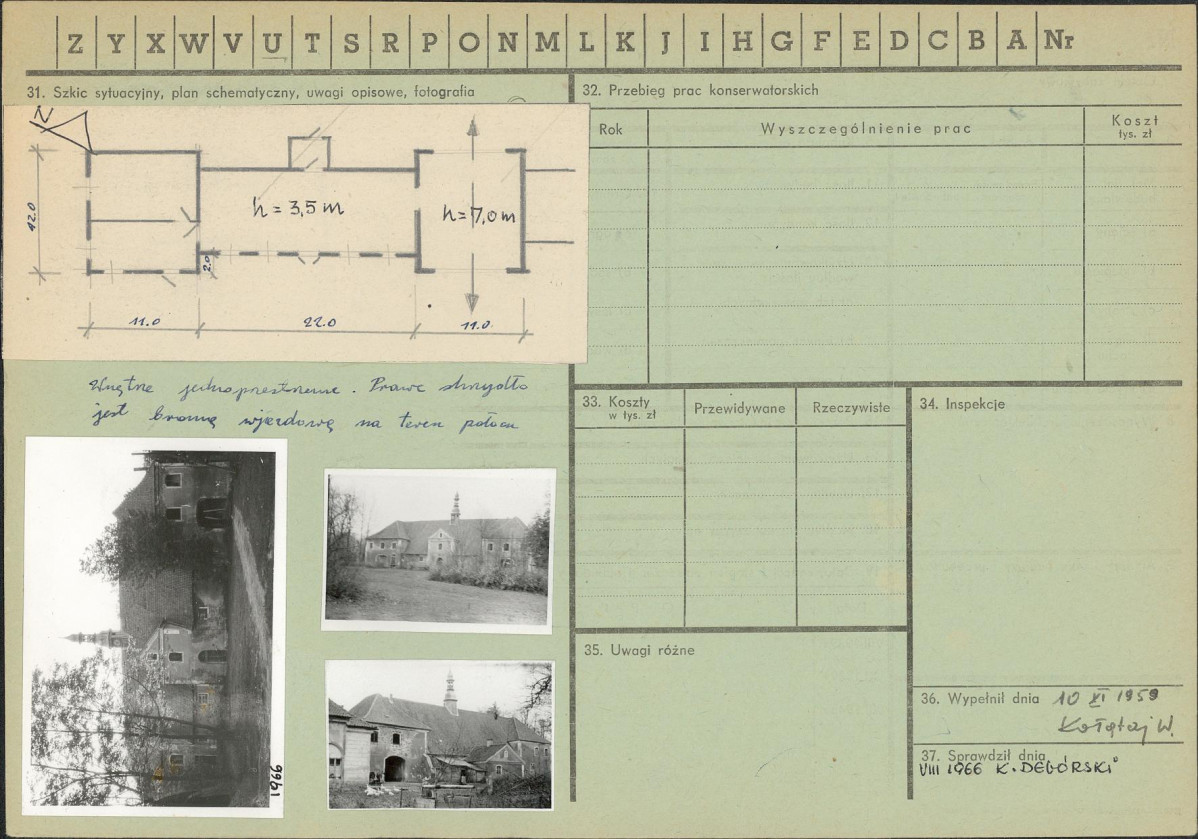 Z Y X W V U T S R P O N M L K J I H G F E D C B A Nr
31. Szkic sytuacyjny, plan schematyczny, uwagi opisowe, fotografia
N
12.0
h = 3,5 m
h = 7,0 m
2.0
11.0
22.0
11.0
Wnętrze jednoprzestrzenne. Prawe skrzydło
jest bramą wjazdową na teren pałacu
1966
32. Przebieg prac konserwatorskich
Rok
Wyszczególnienie prac
Koszt
tys. zł
33. Koszty
w tys. zł
Przewidywane
Rzeczywiste
34. Inspekcje
35. Uwagi różne
36. Wypełnił dnia 10 XI 1959
Kołątaj W.
37. Sprawdził dnia
VIII 1966 K. DEGÓRSKI